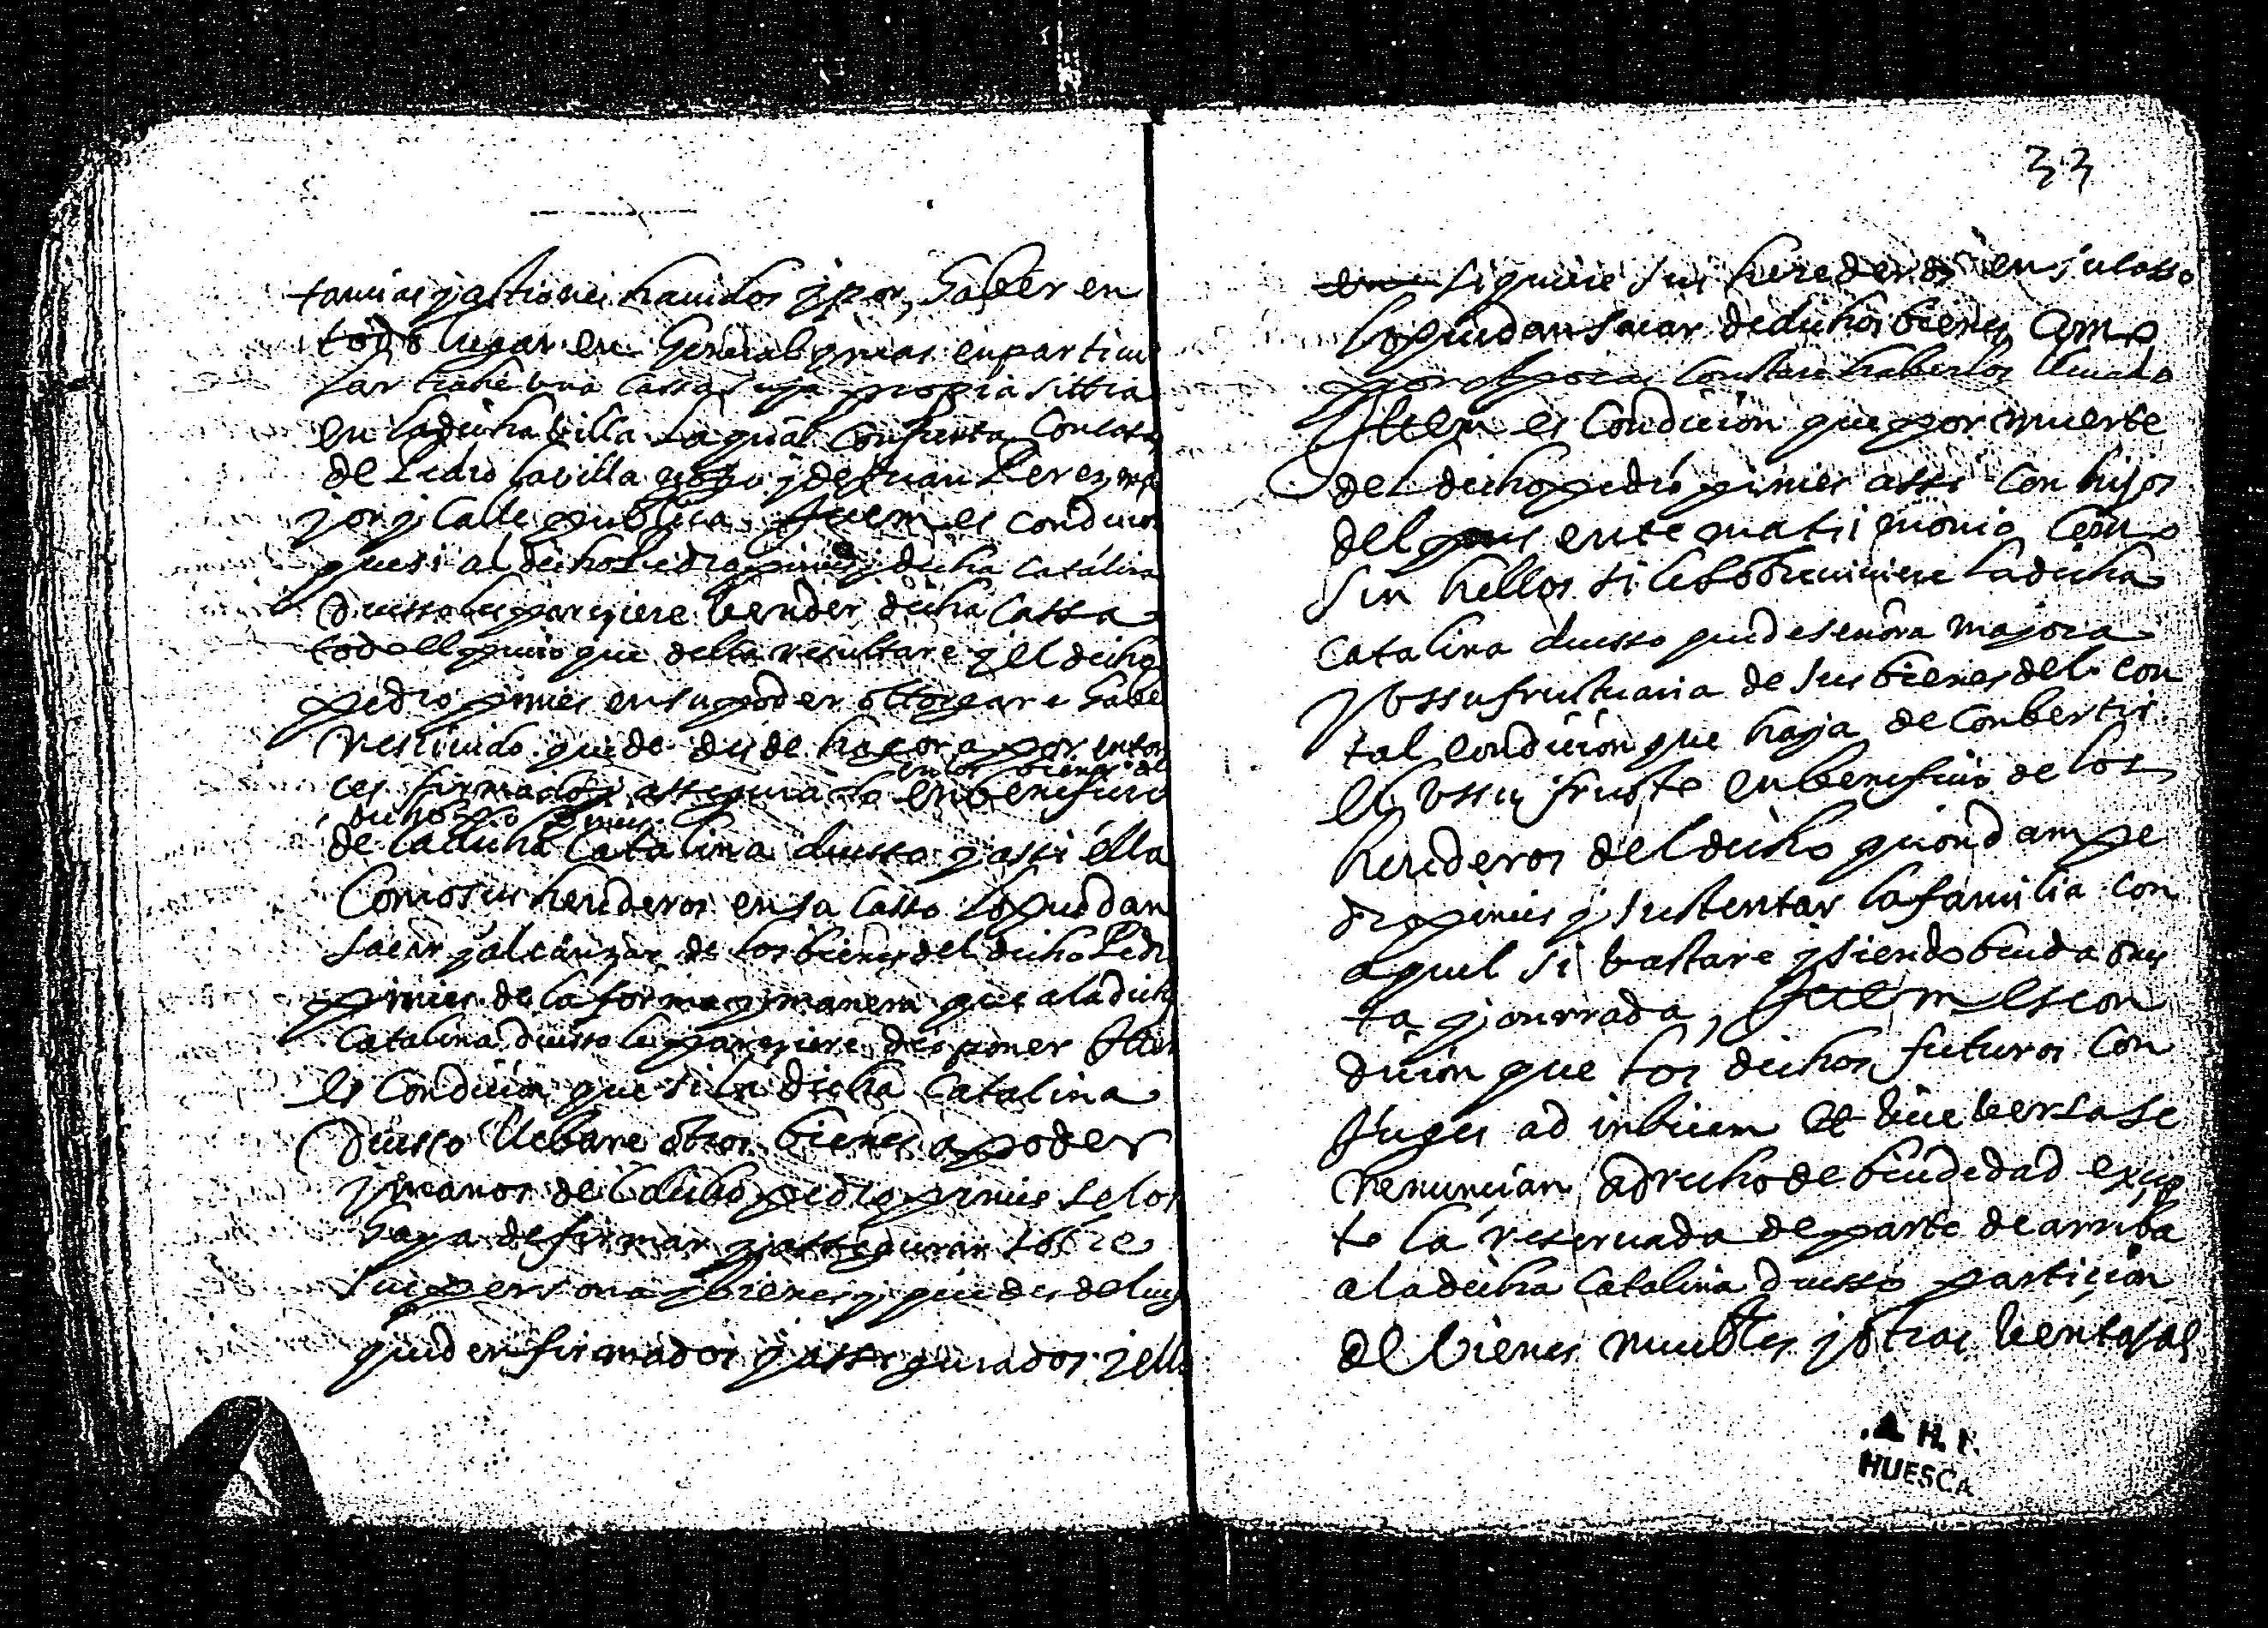 tancias y actiones havidos y por haber en
todo lugar en general y mas en particu
lar trahe una cassa suya propia sittia
en la dicha villa la qual confruenta con casa
de Pedro lavilla y de Juan Perez ma
yor y calle publica Item es condicion
que si al dicho Pedro pinies y dicha catalina
duesso les pareziere bender dicha cassa
todo el precio que della resultare y el dicho
pedro pinies en su poder ottorgare haber
rescivido quede desde hagora por enton
ces firmado y assegurado en los bienes del
dicho P.o pinies en beneficio
de la dicha Catalina duesso y assi ella
como sus herederos en su casso lo puedan
sacar y alcanzar de los bienes del dicho Pedro
pinies de la forma y manera que a la dicha
Catalina duesso le pareziere disponer Item
es condicion que si la dicha Catalina
duesso llebare otros bienes a poder
y manos de dicho pedro pinies se los
haya de firmar y assegurar sobre
su persona y bienes y quedes de luego
queden firmados y assegurados y ella
33
siquiere sus herederos en su casso
lo puedan sacar de dichos bienes como
por apoca constare haberlos llevado
Ittem es condicion que por muerte
del dicho pedro pinies assi con hijos
del pres ente matrimonio como
sin hellos si le sobreviviere la dicha
Catalina duesso quede señora mayora
y ussufructuaria de sus bienes del con
tal condicion que haya de conbertir
el ussu fructo en beneficio de los
herederos del dicho quondam pe
dro pinies y sustentar la familia con
aquel si bastare y siendo biuda ones
ta y onrrada, Item es con
dicion que los dichos futuros con
juges ad inbicem et vice versa se
renuncian a drecho de biudedad excep
to la reservada de parte de arriba
a la dicha Catalina duesso particion
de bienes muebles y otras bentajas
A. H. P.
HUESCA